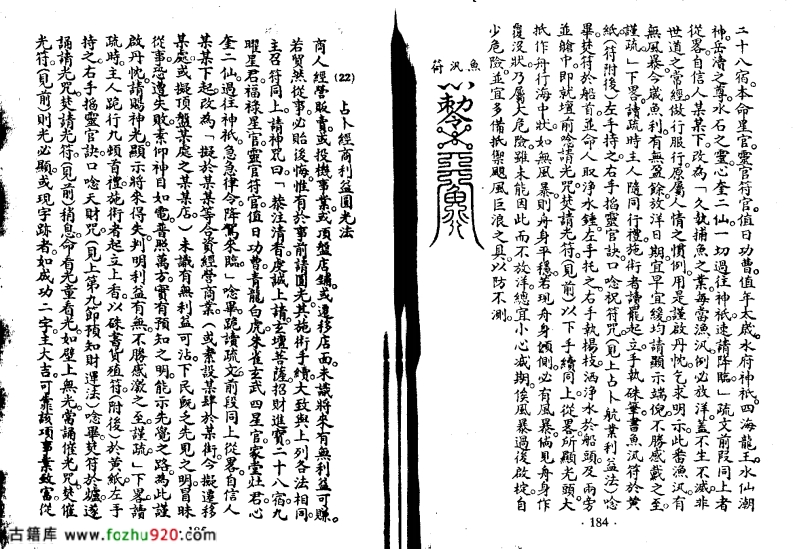 二十八宿本命星官。靈官符官值日功曹值年太歲水府神祇四海龍王水仙湖
神岳瀆之尊。水石之靈。心奎二仙一切過往神祇速請降臨」疏文前段同上者
從畧自信人某某下改為「久執捕魚之業每當漁汎例必放洋蓋不生不滅非
世道之常經。做行服行。原屬人情之慣例。用是謹啟丹忱乞求明示此番漁汎有
無風暴。今歲魚利有無盈餘。放洋日期宜早宜緩均請顯示端倪不勝感戴之至
謹疏」下畧。請疏時主人隨同行禮。施術者請罷起立手執硃筆書魚汎符於黃
紙(符附後)左手持之右手搯靈官訣口唸祝符咒(見上占卜航業利益法)唸
畢焚符於船首並命人取淨水鍾左手托之右手執楊枝洒淨水於船頭及兩旁
並艙中即就壇前唸請光咒焚請光符(見前)以下手續同上從畧所顯光頭大
抵作舟行海中狀如無風暴則舟身平穩若現舟身傾側必有風暴。倘見舟身作
覆沒狀乃屬大危險。雖未能因此而不放洋總宜小心減期俟風暴過後啟椗自
少危險。並宜多備抵禦颶風巨浪之具。以防不測。
魚汎符
敕令
·184·
(22) 占卜經商利益圓光法
商人經營販賣或投機事業。或頂盤店鋪。或遷移店面未識將來有無利益可賺。
若貿然從事。必貽後悔。惟有於事前請圓光其施術手續大致與上列各法相同。
主召符同上請神咒曰「恭注清香虔誠上請玄壇菩薩招財進寶二十八宿九
曜星君。福祿星官靈官符官值日功曹青龍白虎朱雀玄武四星官家堂灶君心
奎二仙過往神祇急急律令降駕來臨」唸畢跪讀疏文前段同上從畧自信人
某某下起改為「擬於某某等合資經營商業(或業設某肆於某街今擬遷移
某處或擬頂盤某處之某某店)未識有無利益可沾下民既乏先見之明。冒昧
從事。恐遭失敗。素仰神目如電普照萬方。實有預知之明。能示先覺之路。為此謹
啟丹忱請賜神光顯示將來得失。判明利益有無。不勝感激之至謹疏」下畧請
疏時主人跪行九頓首禮。施術者起立上香以硃書貨殖符(附後)於黃紙左手
持之右手搯靈官訣口唸天財咒(見上第九節預知財運法)唸畢焚符於爐遂
誦請光咒焚請光符(見前)稍息命有九童看光如壁上無光當誦催光咒焚催
光符(見前)則光必顯。或現字跡者如成功二字主大吉。可靠該項事業致富從
古籍库 www.fozhu920.com